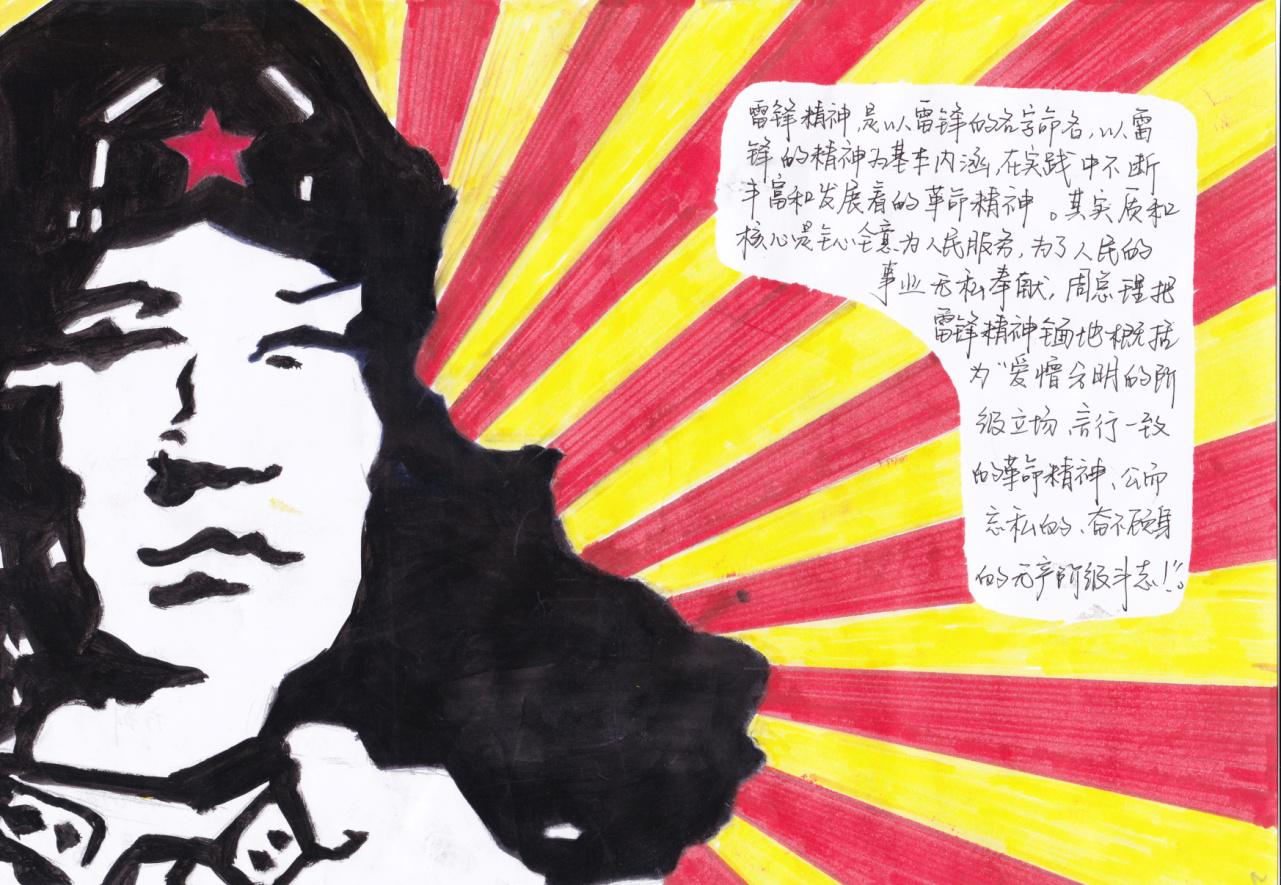 雷锋精神,是以雷锋的名字命名,以雷
锋的精神为基本内涵,在实践中不断
丰富和发展着的革命精神。其实质和
核心是全心全意为人民服务,为了人民的
事业无私奉献,周总理把
雷锋精神全面地概括
为“爱憎分明的阶
级立场、言行一致
的革命精神、公而
忘私的、奋不顾身
的无产阶级斗志!”。